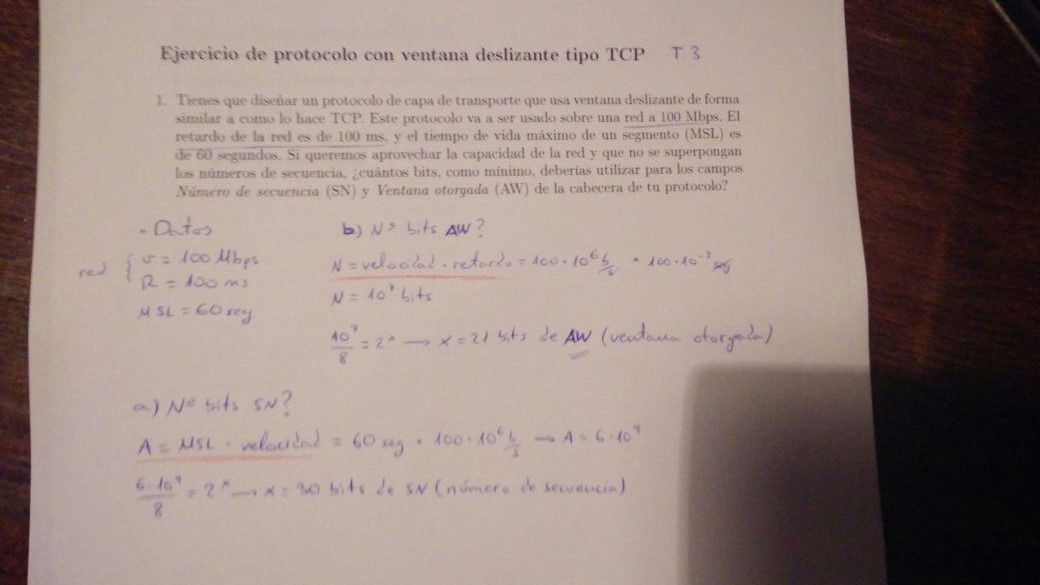 Ejercicio de protocolo con ventana deslizante tipo TCP T 3
1. Tienes que diseñar un protocolo de capa de transporte que usa ventana deslizante de forma
similar a como lo hace TCP. Este protocolo va a ser usado sobre una red a 100 Mbps. El
retardo de la red es de 100 ms, y el tiempo de vida máximo de un segmento (MSL) es
de 60 segundos. Si queremos aprovechar la capacidad de la red y que no se superpongan
los números de secuencia, ¿cuántos bits, como mínimo, deberías utilizar para los campos
Número de secuencia (SN) y Ventana otorgada (AW) de la cabecera de tu protocolo?
- Datos
red { v = 100 Mbps
R = 100 ms
MSL = 60 seg
b) Nº bits AW?
N = velocidad · retardo = 100 · 10⁶ b/s · 100 · 10⁻³ seg
N = 10⁷ bits
10⁷/8 = 2ˣ → x = 21 bits de AW (ventana otorgada)
a) Nº bits SN?
A = MSL · velocidad = 60 seg · 100 · 10⁶ b/s → A = 6 · 10⁹
6 · 10⁹/8 = 2ˣ → x = 30 bits de SN (número de secuencia)